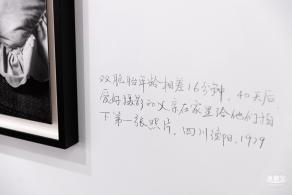 双胞胎年龄相差16分钟，40天后
爱好摄影的父亲在家里给他们拍
下第一张照片，四川德阳，1979